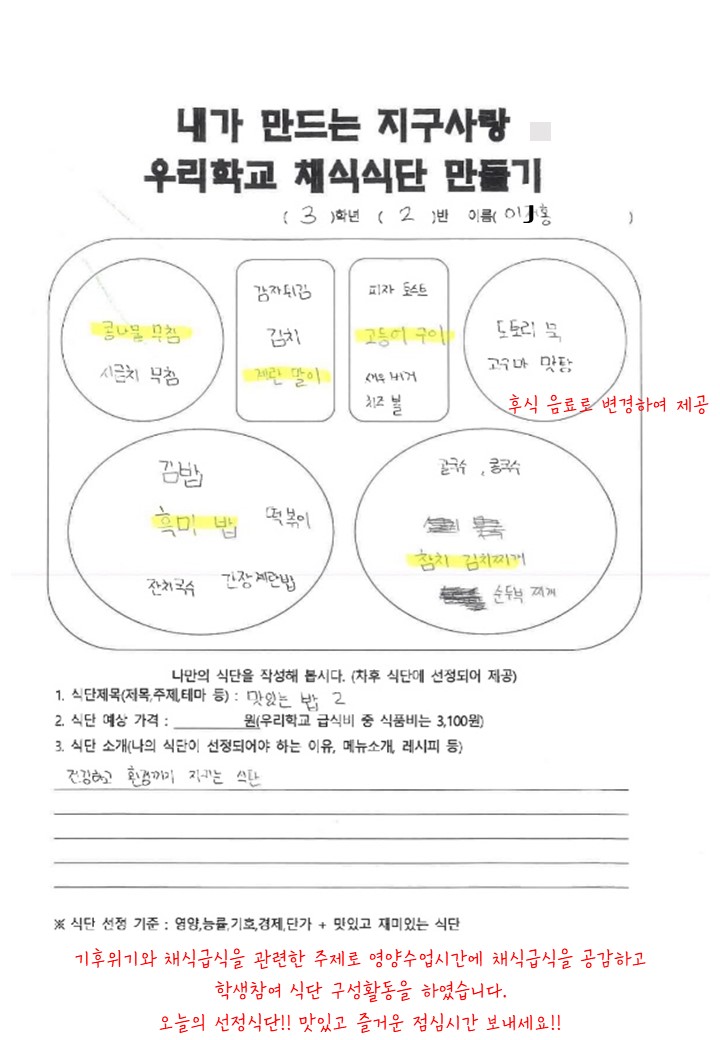 내가 만드는 지구사랑
우리학교 채식식단 만들기
( 3 )학년 ( 2 )반 이름( )
콩나물 무침
시금치 무침
감자튀김
김치
계란 말이
피자 토스트
고등어 구이
새우 버거
치즈 볼
도토리 묵
고구마 맛탕
후식 음료로 변경하여 제공
김밥
흑미 밥
떡볶이
잔치국수
간장계란밥
칼국수, 콩국수
참치 김치찌개
순두부 찌개
나만의 식단을 작성해 봅시다. (차후 식단에 선정되어 제공)
1. 식단제목(제목,주제,테마 등) : 맛있는 밥 2
2. 식단 예상 가격 : 원(우리학교 급식비 중 식품비는 3,100원)
3. 식단 소개(나의 식단이 선정되어야 하는 이유, 메뉴소개, 레시피 등)
건강하고 환경까지 지키는 식단
※ 식단 선정 기준 : 영양,능률,기호,경제,단가 + 맛있고 재미있는 식단
기후위기와 채식급식을 관련한 주제로 영양수업시간에 채식급식을 공감하고
학생참여 식단 구성활동을 하였습니다.
오늘의 선정식단!! 맛있고 즐거운 점심시간 보내세요!!